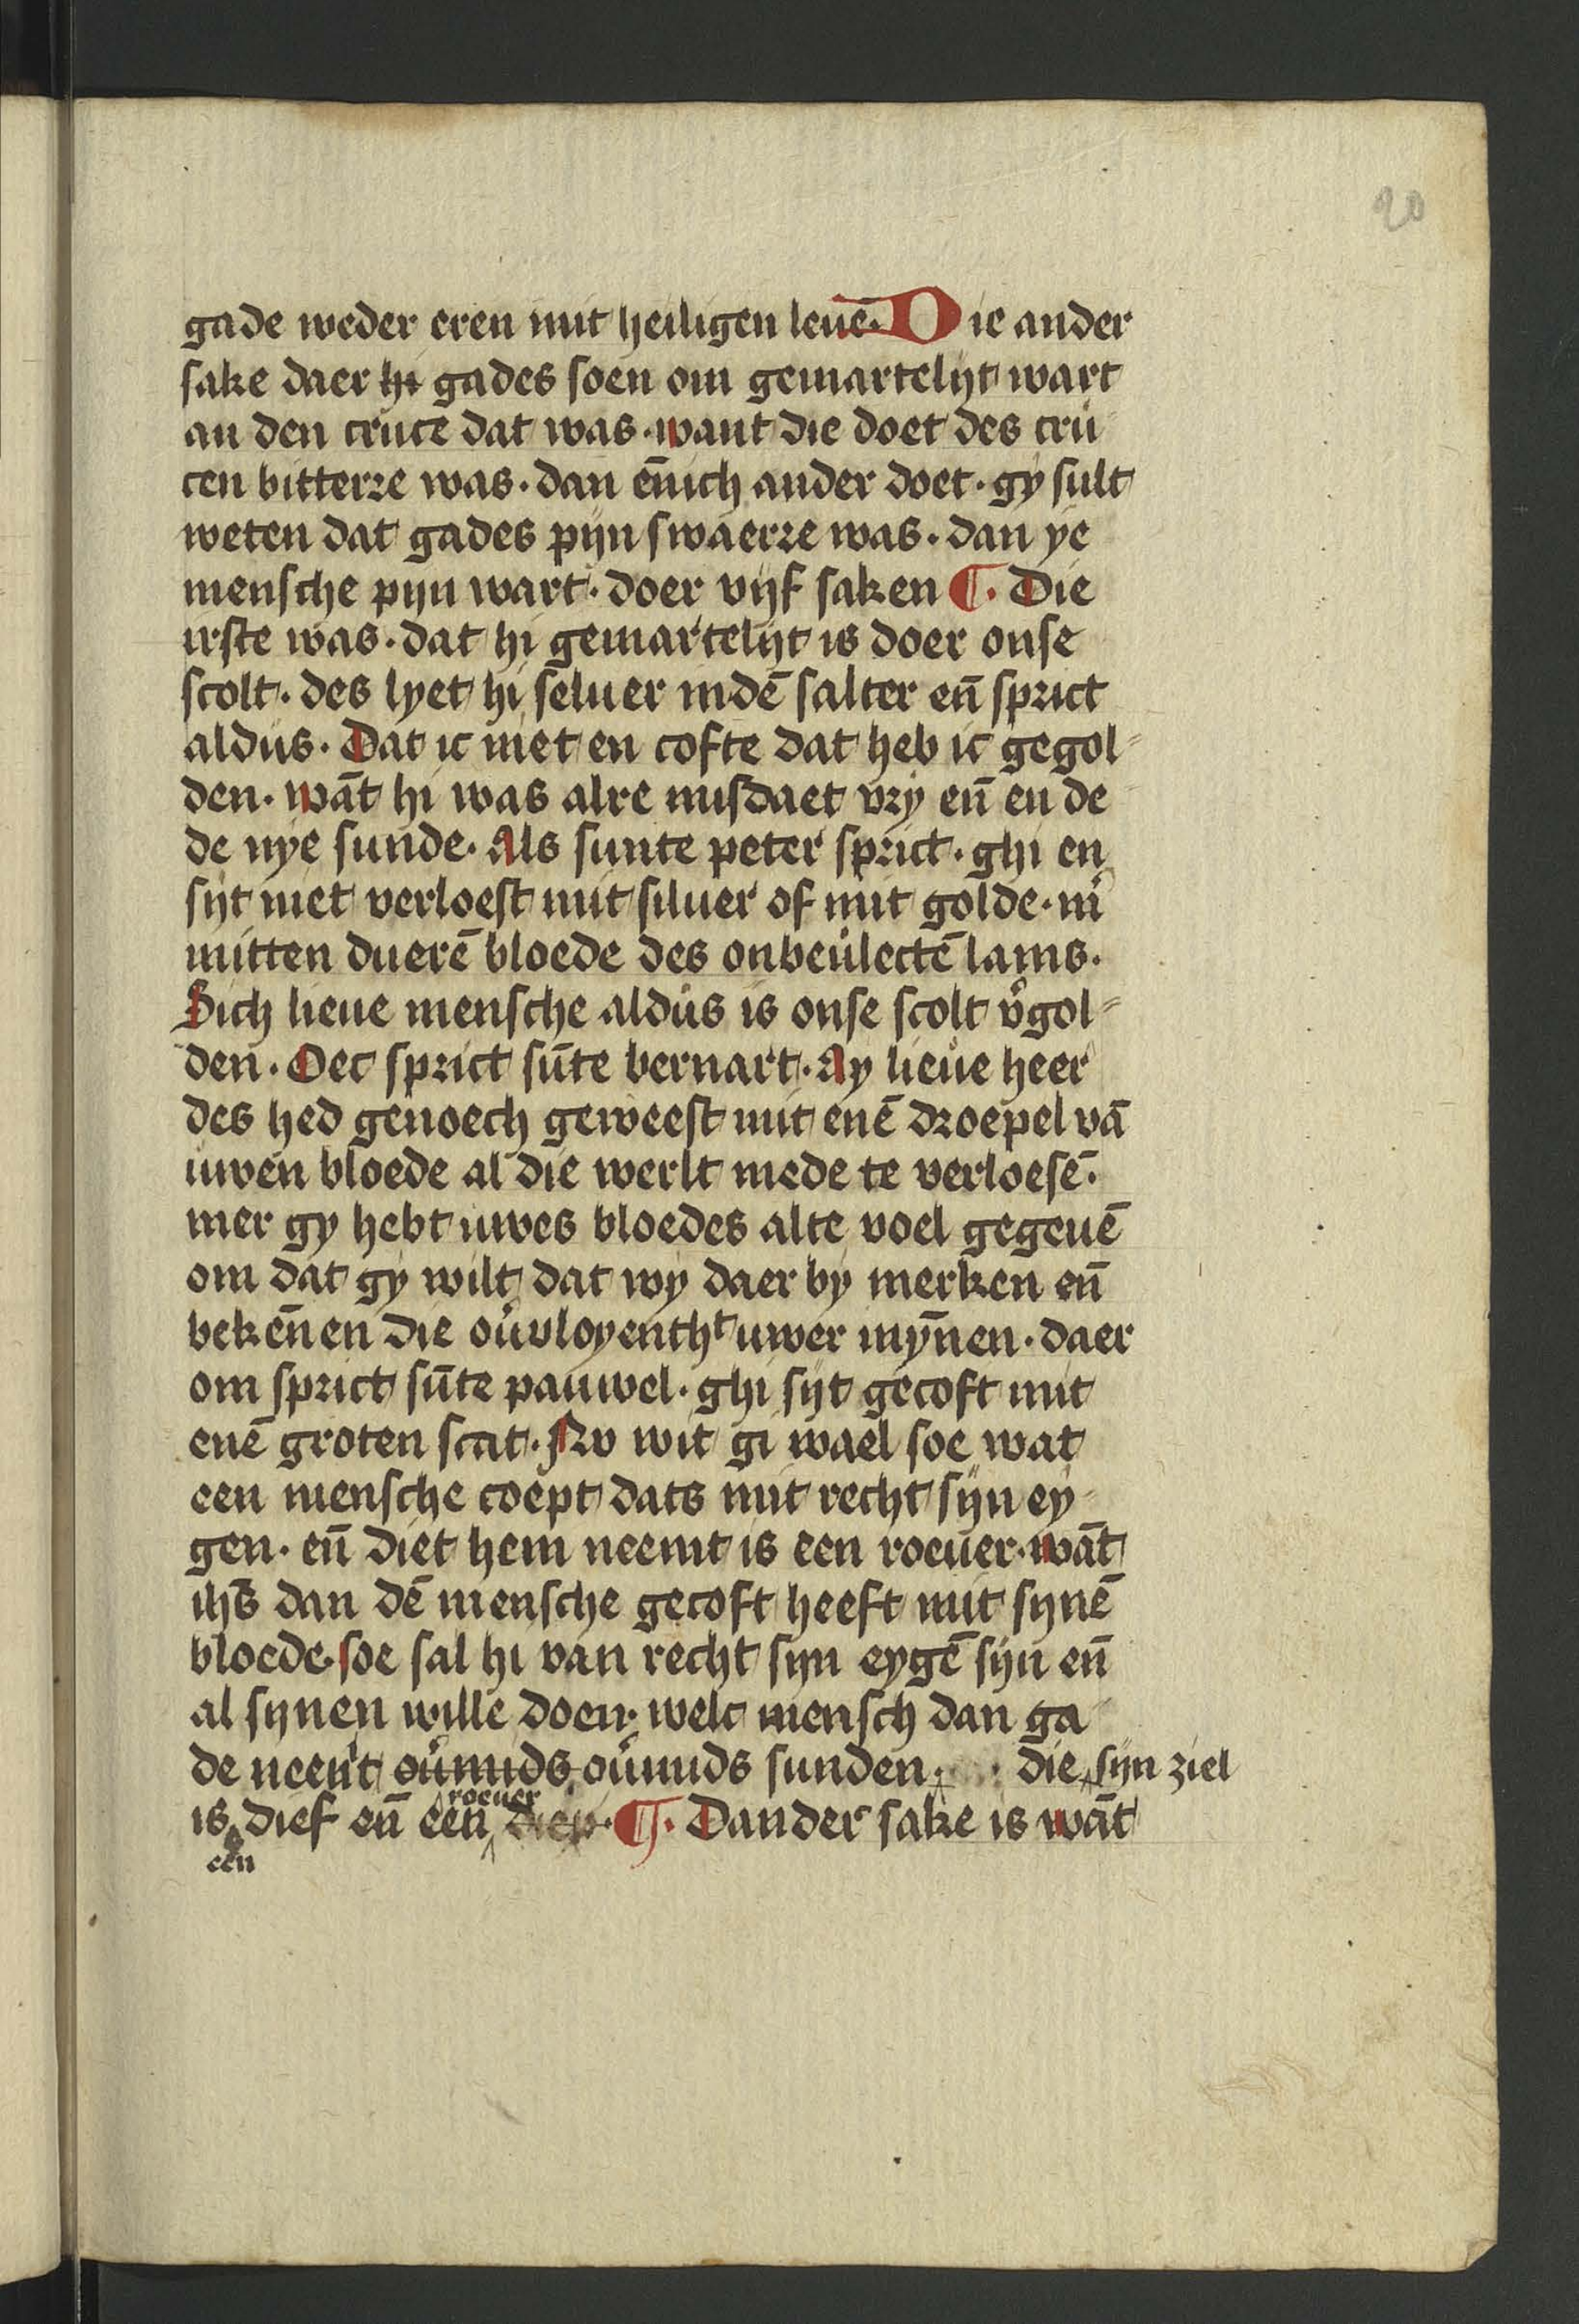 20
gade weder eren mit heiligen leuē. Die ander
sake daer hi gades soen om gemartelijt wart
an den cruce dat was. want die doet des cru
cen bitterre was. dan ēnich ander doet. gy sult
weten dat gades pijn swaerre was. dan ye
mensche pijn wart. doer vijf saken ¶. Die
irste was. dat hi gemartelijt is doer onse
scolt. des lyet hi seluer in dē salter en̄ sprict
aldus. Dat ic niet en cofte dat heb ic gegol-
den. wāt hi was alre misdaet vry en̄ en de
de nye sunde. Als sunte peter sprict. ghi en
sijt niet verloest mit siluer of mit golde. m̄
mitten duerē bloede des onbeulectē lams.
Sich lieue mensche aldus is onse scolt v̄gol-
den. Oec sprict sūte bernart. Ay lieue heer
des hed genoech geweest mit enē droepel vā
uwen bloede al die werlt mede te verloesē.
mer gy hebt uwes bloedes alte voel gegeuē
om dat gy wilt dat wy daer by merken en̄
bekēnen die ou̇vloyentht uwer myn̄en. daer
om sprict sūte pauwel. ghi sijt gecoft mit
enē groten scat. Nv wit gi wael soe wat
een mensche coept dats mit recht sijn ey-
gen. en̄ diet hem neemt is een roeuer. wāt
ihs̄ dan dē mensche gecoft heeft mit sijnē
bloede. soe sal hi van recht sijn eygē sijn en̄
al sijnen wille doen. welc mensch dan ga
de neemt ou̇mids ou̇mids sunden. die sijn ziel
roeuer
is dief en̄ een diep. ¶. Dander sake is wāt
een